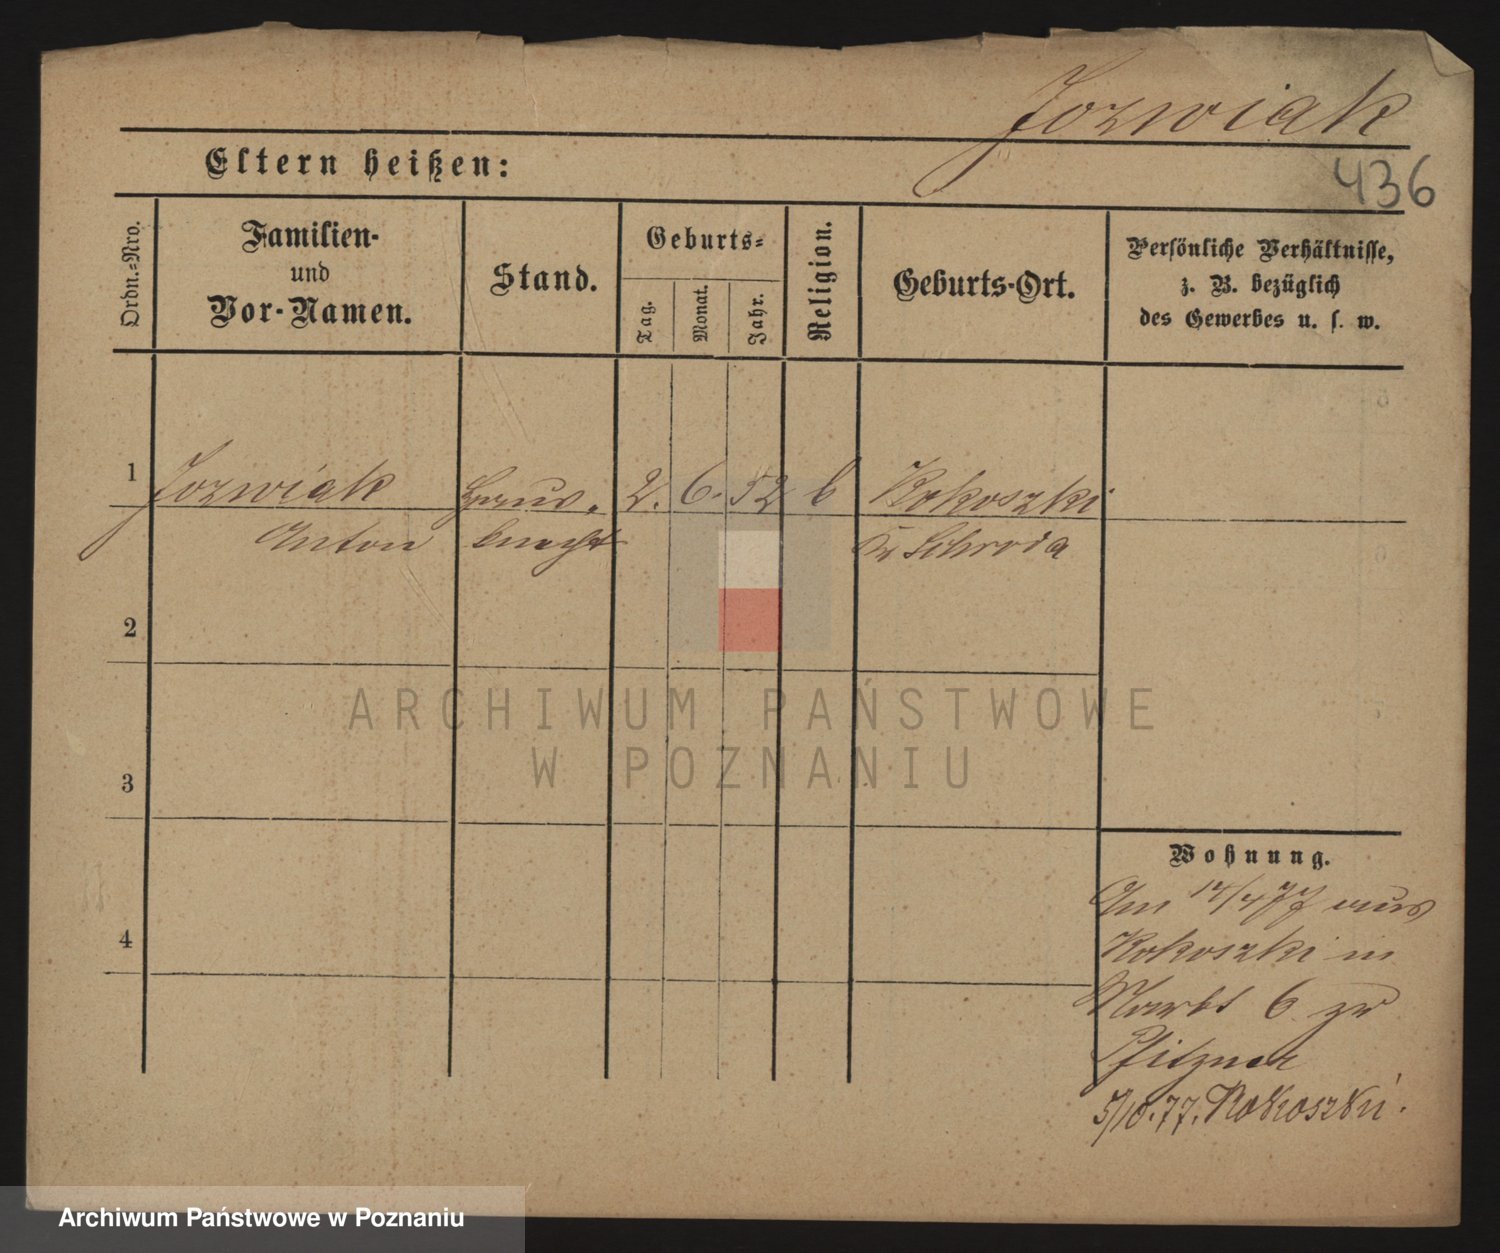 Jozwiak
436
Eltern heißen:
Ordn.-Nro.
Familien-
und
Vor-Namen.
Stand.
Geburts-
Tag.
Monat.
Jahr.
Religion.
Geburts-Ort.
Persönliche Verhältnisse,
z. B. bezüglich
des Gewerbes u. s. w.
1
Jozwiak Haus- 2. 6. 52 k Rokoszki
Anton knecht Kr Schroda
2
3
4
Wohnung.
Am 14/4 77 aus
Rokoszki in
Markt 6 zu
Pfitzner
5/10.77. Rokoszki.
ARCHIWUM PAŃSTWOWE
W POZNANIU
Archiwum Państwowe w Poznaniu